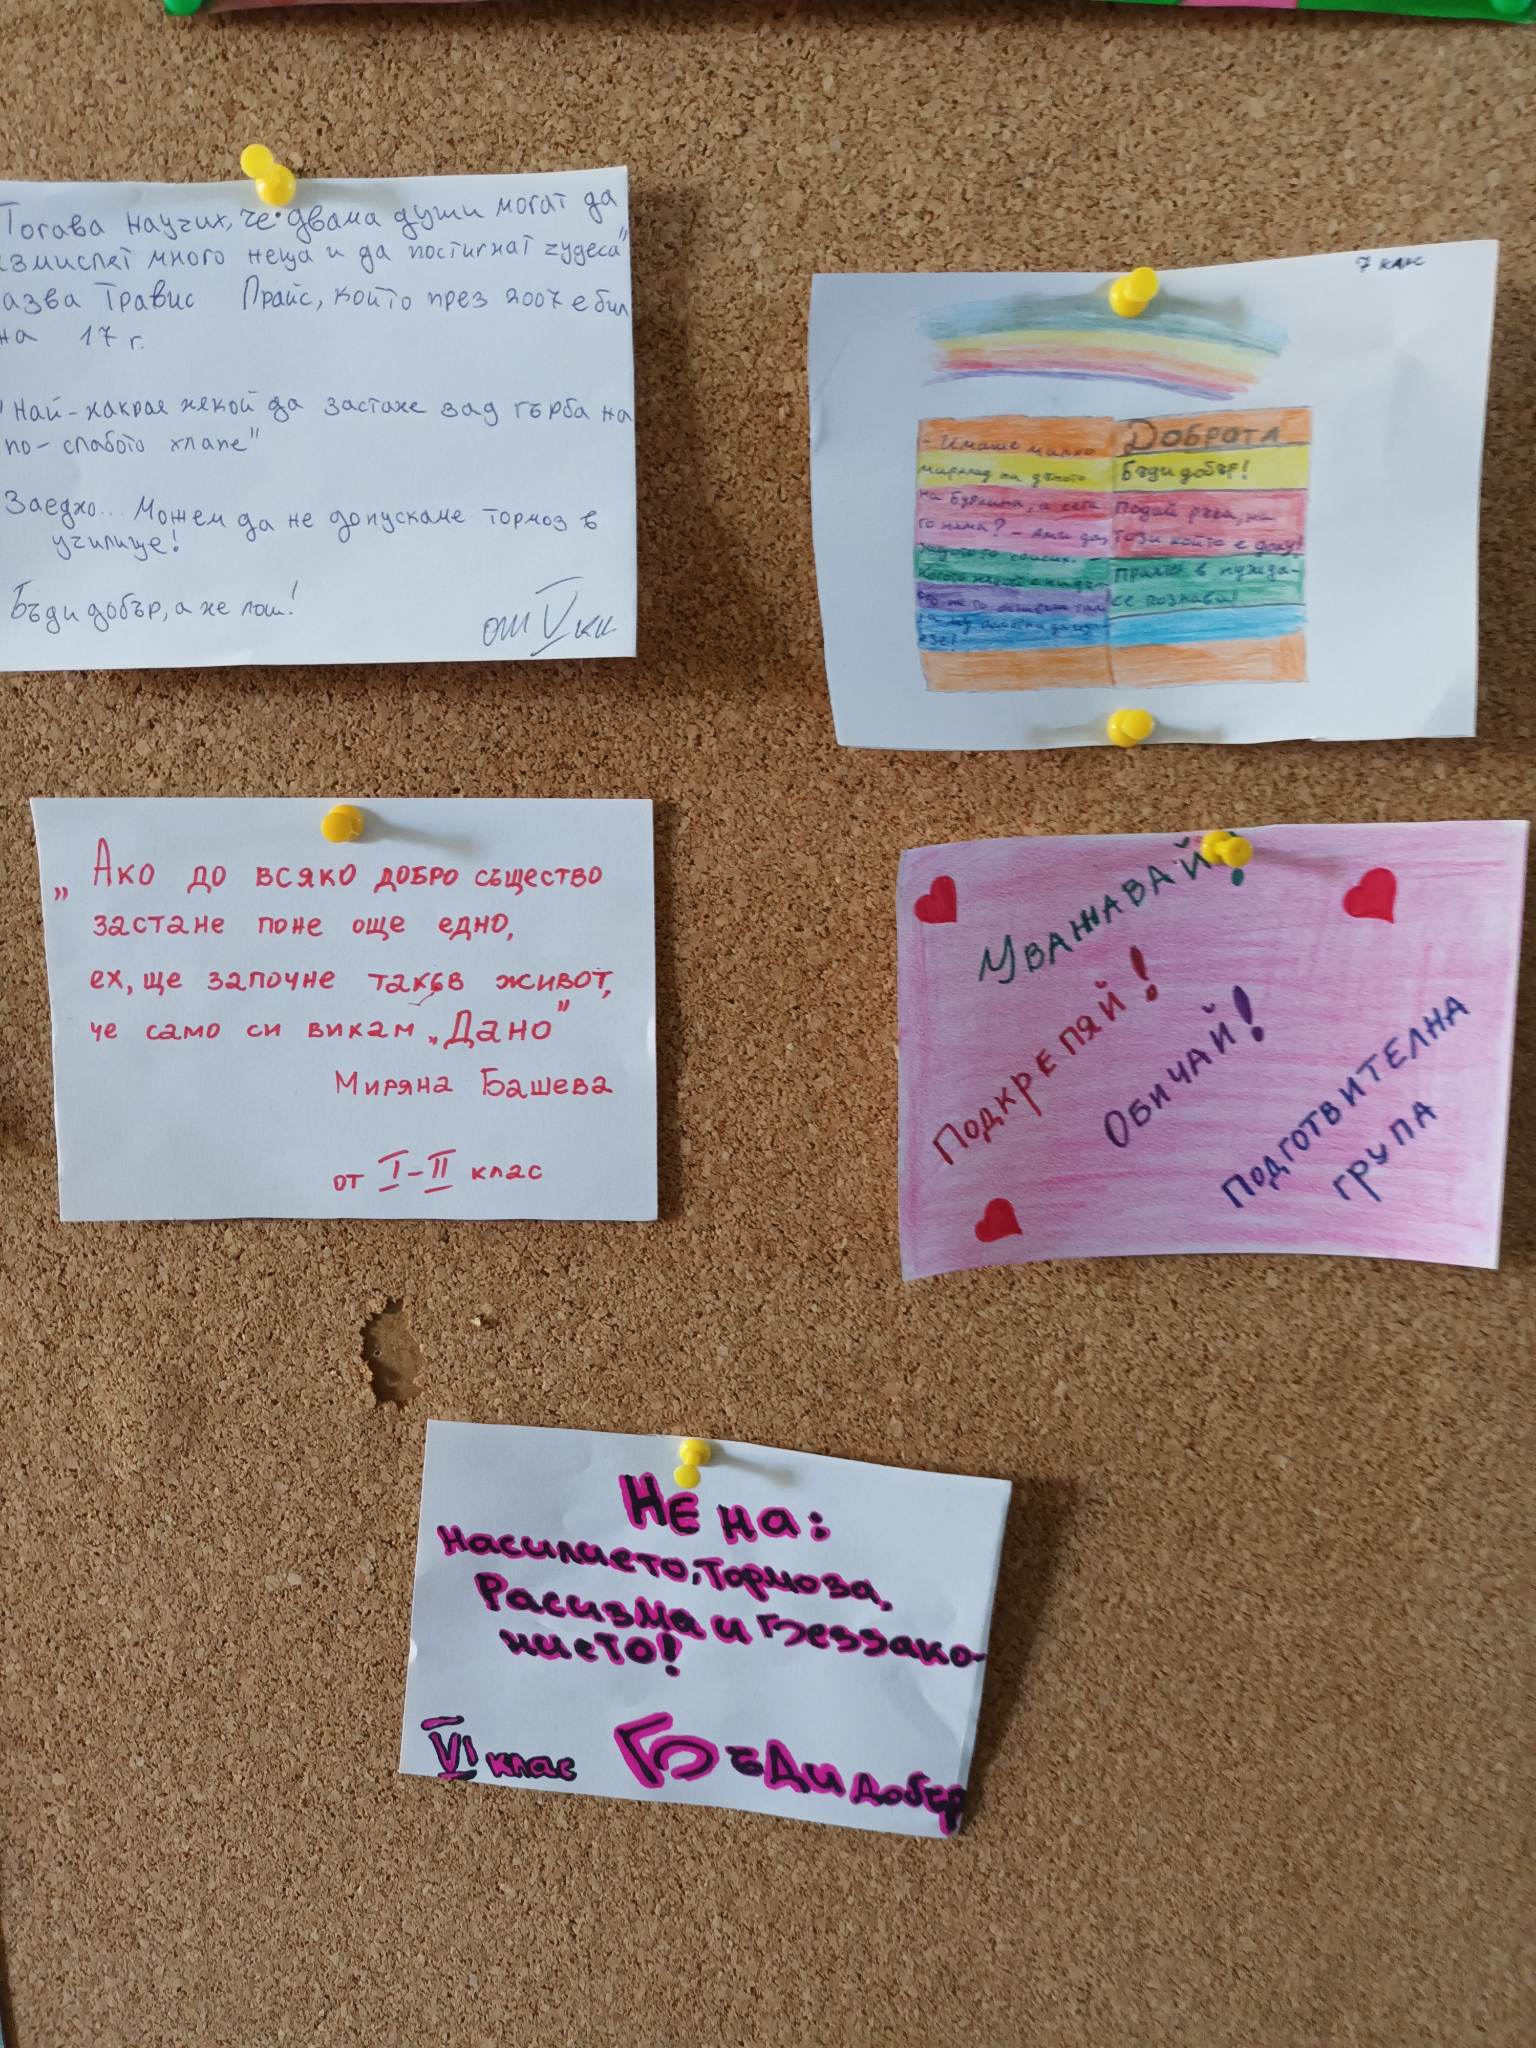 Тогава научих, че двама души могат да
измислят много неща и да постигнат чудеса"
казва Травис Прайс, който през 2007 е бил
на 17 г.
"Най-накрая някой да застане зад гърба на
по-слабото хлапе"
Заедно... Можем да не допускаме тормоз в
училище!
Бъди добър, а не лош!
от V кл
7 клас
- Имаше малко
мармалад на дъното
на буркана, а сега
го няма? - Ами да,
защото го
Когато някой
ДОБРОТА
Бъди добър!
Подай ръка, на
този който е долу!
Приятел в нужда
се познава!
„Ако до всяко добро същество
застане поне още едно,
ех, ще започне такъв живот,
че само си викам „Дано"
Миряна Башева
от I-II клас
Уважавай!
Подкрепяй!
Обичай!
Подготвителна
група
Не на:
насилието, тормоза,
Расизма и Беззако-
нието!
VI клас
Бъди добър